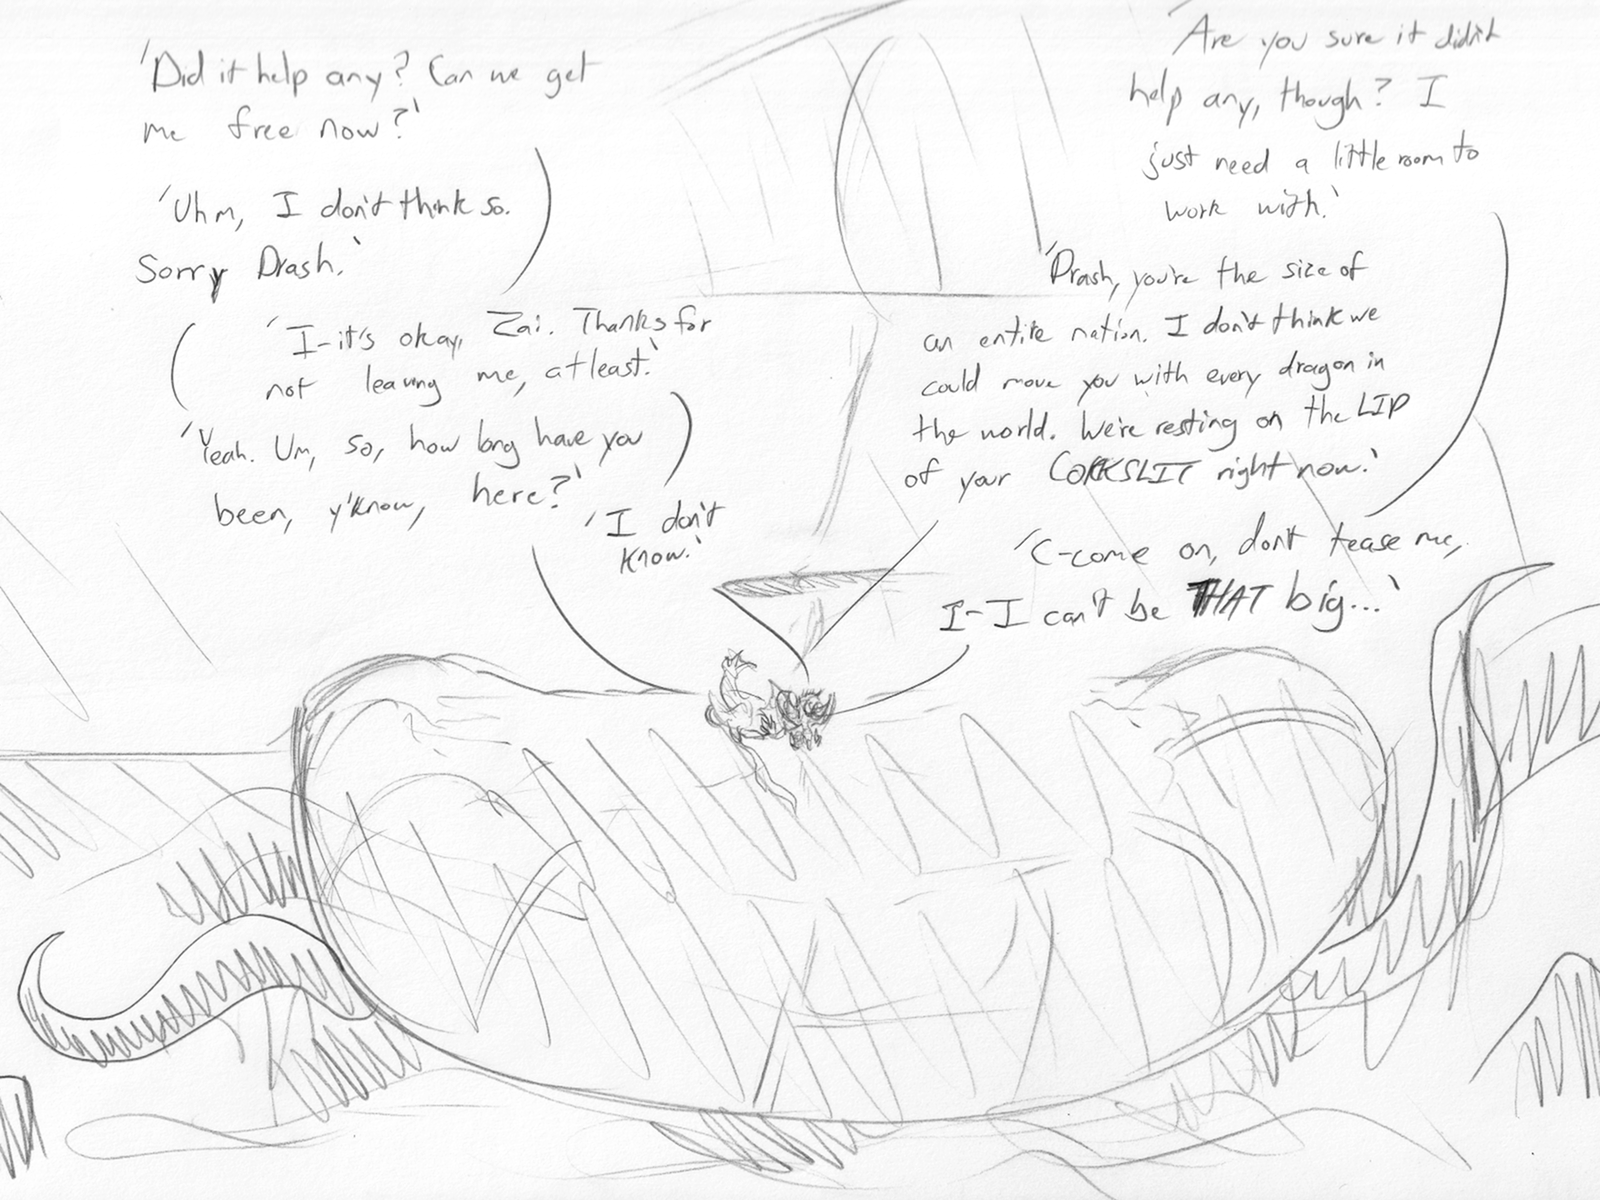 'Did it help any? Can we get
me free now?'
'Uhm, I don't think so.
Sorry Drash.'
'I-it's okay, Zai. Thanks for
not leaving me, at least.'
'Yeah. Um, so, how long have you
been, y'know, here?'
'I don't
know.'
Are you sure it didn't
help any, though? I
just need a little room to
work with.'
'Drash, you're the size of
an entire nation. I don't think we
could move you with every dragon in
the world. We're resting on the LIP
of your COCKSLIT right now.'
'C-come on, don't tease me,
I-I can't be THAT big...'